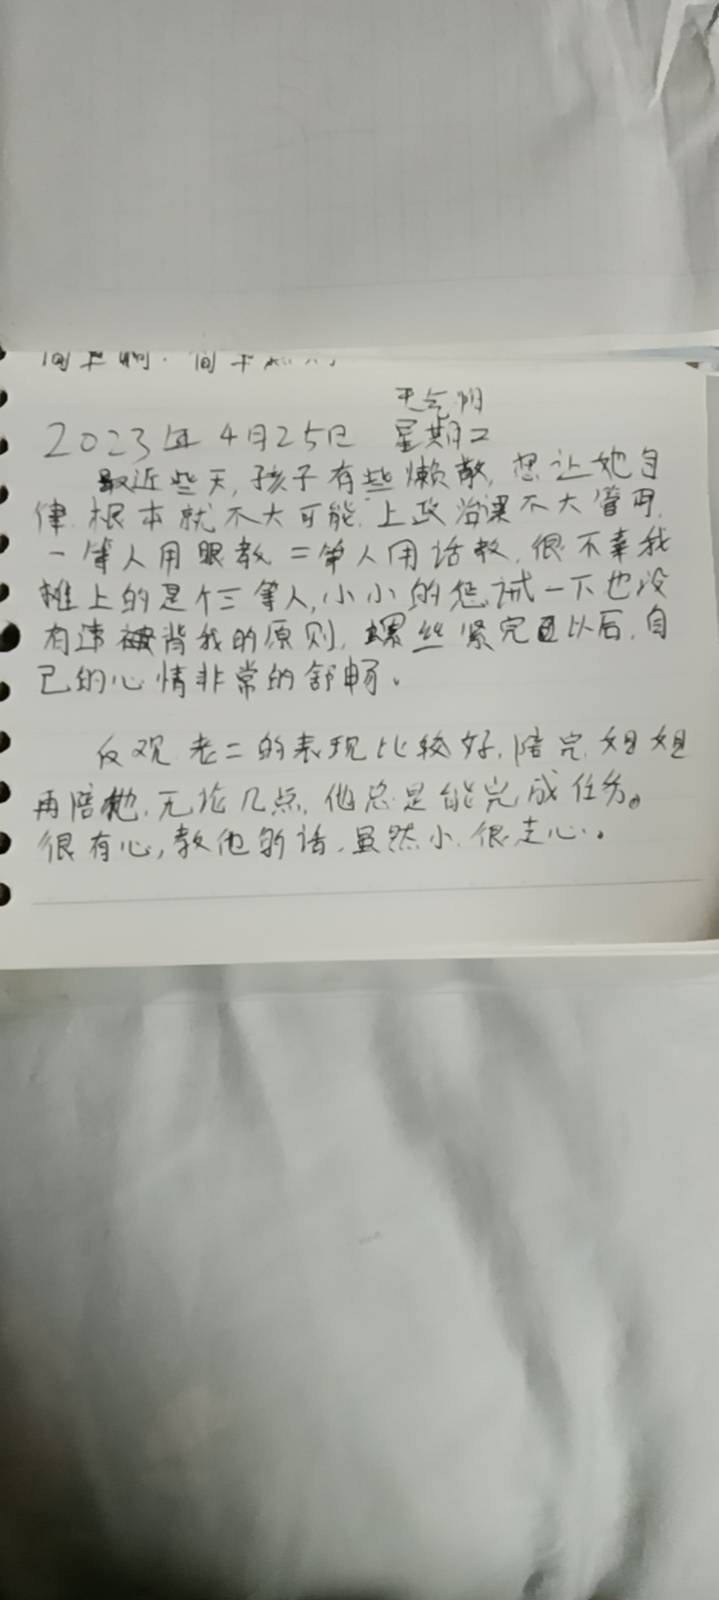 天气阴
2023年4月25日 星期二
最近些天,孩子有些懒散,想让她自
律.根本就不大可能.上政治课不大管用.
一等人用眼教 二等人用话教.很不幸我
摊上的是个三等人,小小的惩诫一下也没
有违背我的原则.螺丝紧完以后,自
己的心情非常的舒畅。
反观老二的表现比较好,陪完姐姐
再陪他.无论几点.他总是能完成任务。
很有心,教他的话.虽然小.很走心.。